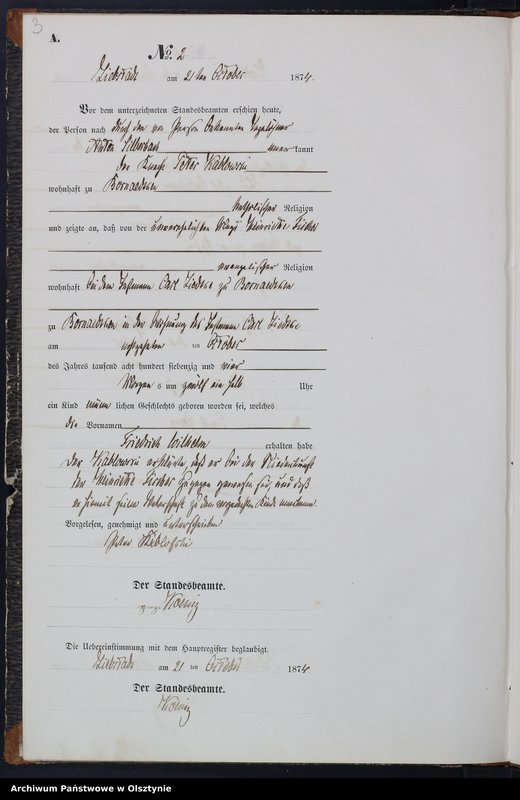 3
A.
No. 2
am 21ten October 1874.
Vor dem unterzeichneten Standesbeamten erschien heute,
der Person nach durch den von Person bekannten
Anton kannt
der Knecht Peter
wohnhaft zu
katholischer Religion
und zeigte an, daß von der unverehelichten Magd Heinriette Fischer
evangelischer Religion
wohnhaft bei dem Carl zu
zu in der Wohnung des Carl
am achtzehnten ten October
des Jahres tausend acht hundert siebenzig und vier
Morgens um zwölf ein halb Uhr
ein Kind männlichen Geschlechts geboren worden sei, welches
die Vornamen
Friedrich Wilhelm erhalten habe
Der erklärte, daß er bei der Niederkunft
der Heinriette Fischer zugegen gewesen sei, und daß
er hiermit seine Vaterschaft zu dem Kinde anerkenne.
Vorgelesen, genehmigt und unterschrieben
Peter
Der Standesbeamte.
gez. Koenig
Die Uebereinstimmung mit dem Hauptregister beglaubigt.
am 21 ten October 1874
Der Standesbeamte.
Koenig
Archiwum Państwowe w Olsztynie